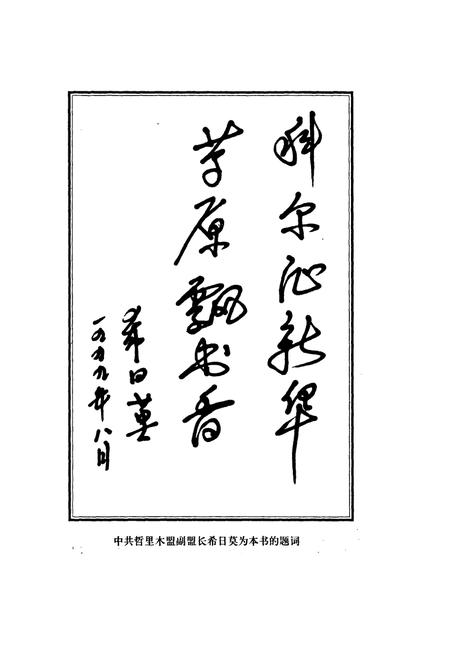 科尔沁新华
草原飘书香
希日莫
一九九九年八月
中共哲里木盟副盟长希日莫为本书的题词